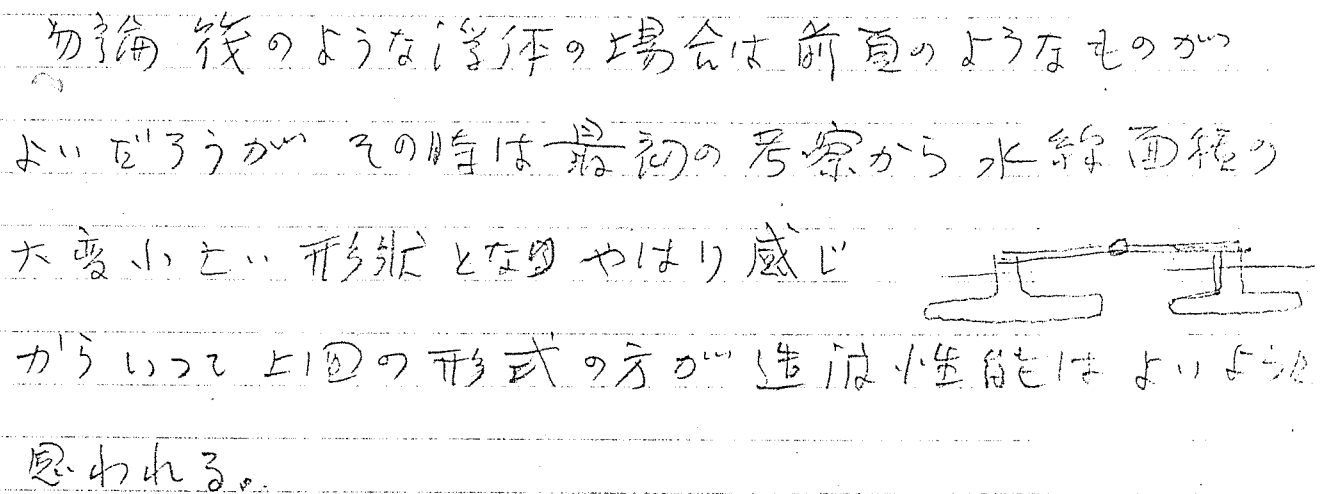 勿論 後のような浮体の場合は前頁のようなものが
よいだろうが その時は最初の考察から水線面積の
大変小さい形状となり やはり感じ
からいって上図の形式の方が造波性能はよいように
思われる。